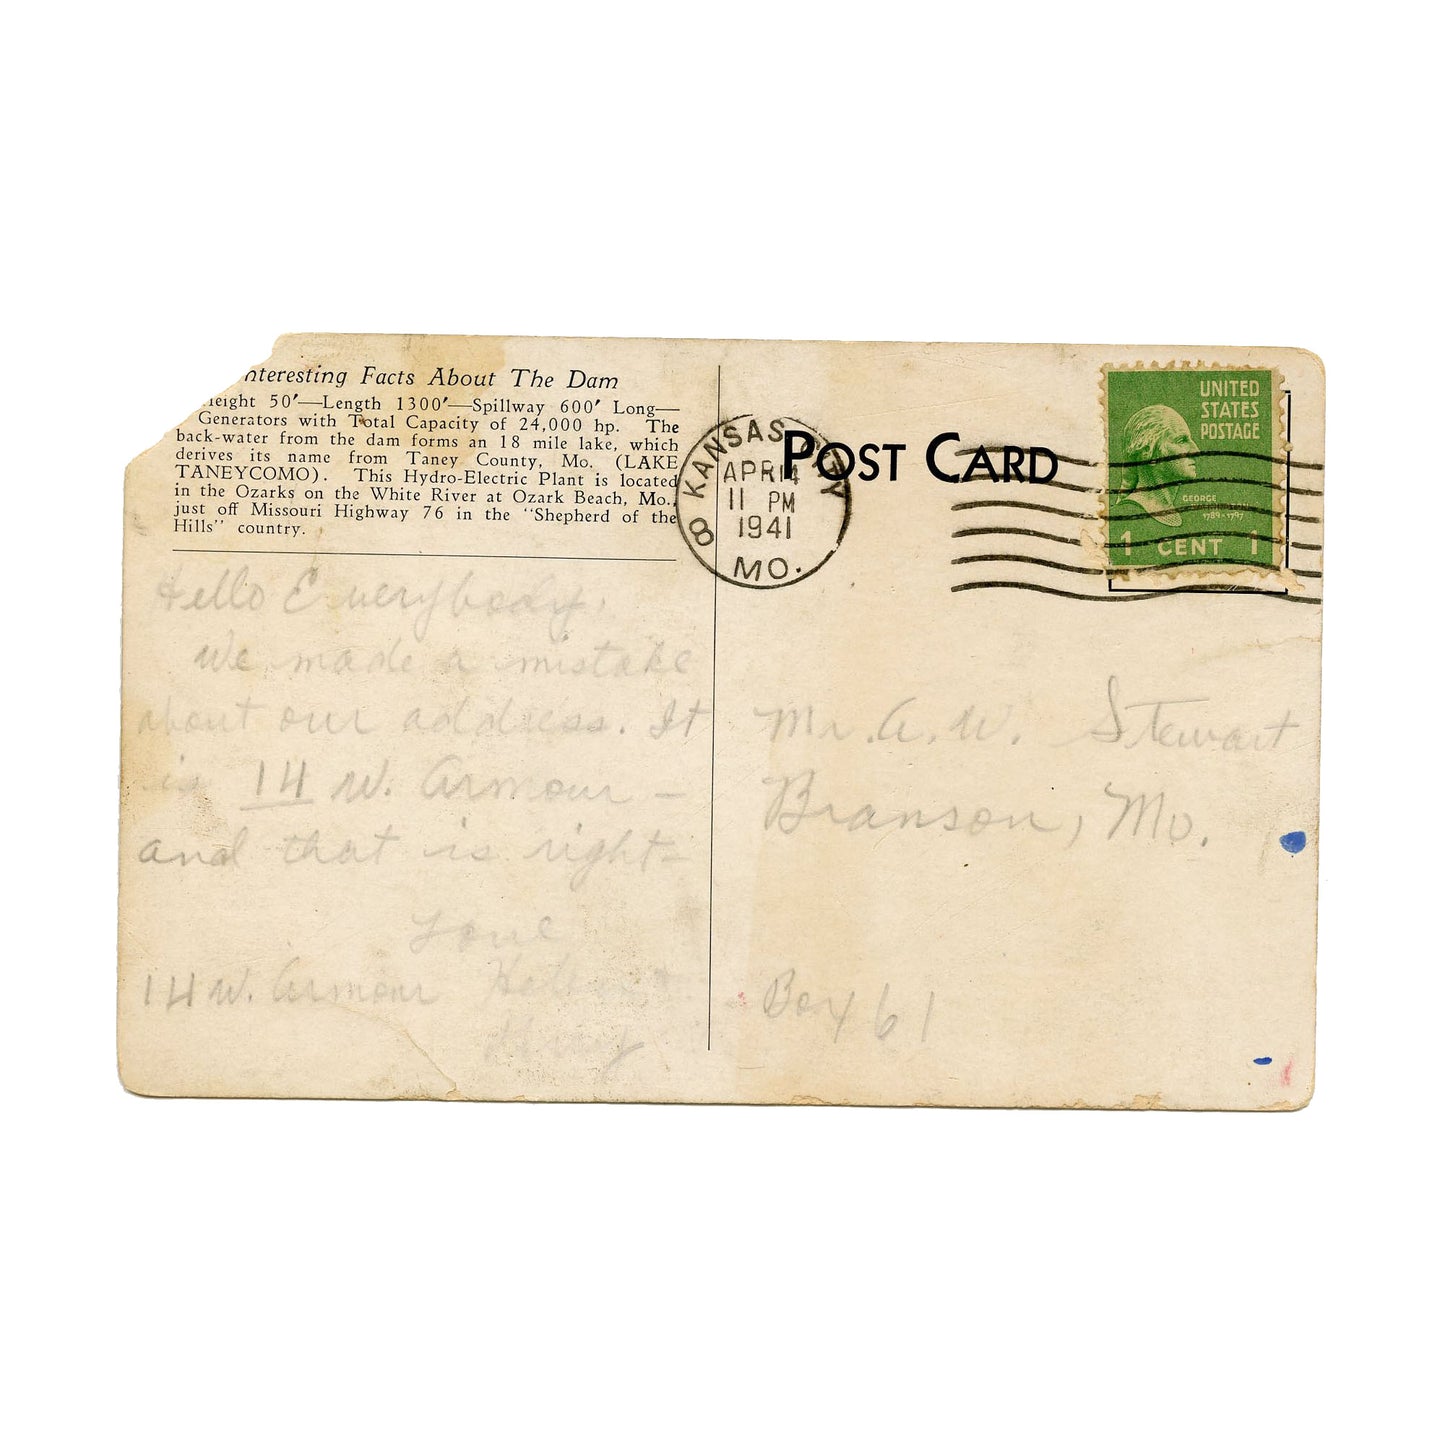 nteresting Facts About The Dam
eight 50'—Length 1300'—Spillway 600' Long—
Generators with Total Capacity of 24,000 hp. The
back-water from the dam forms an 18 mile lake, which
derives its name from Taney County, Mo. (LAKE
TANEYCOMO). This Hydro-Electric Plant is located
in the Ozarks on the White River at Ozark Beach, Mo.,
just off Missouri Highway 76 in the "Shepherd of the
Hills" country.
Hello Everybody,
We made a mistake
about our address. It
is 14 W. Armour –
and that is right –
Love
14 W. Armour
KANSAS CITY
APR 14
11 PM
1941
8
MO.
POST CARD
UNITED
STATES
POSTAGE
GEORGE
WASHINGTON
1789-1797
1 CENT 1
Mr. A. W. Stewart
Branson, Mo.
Box 61